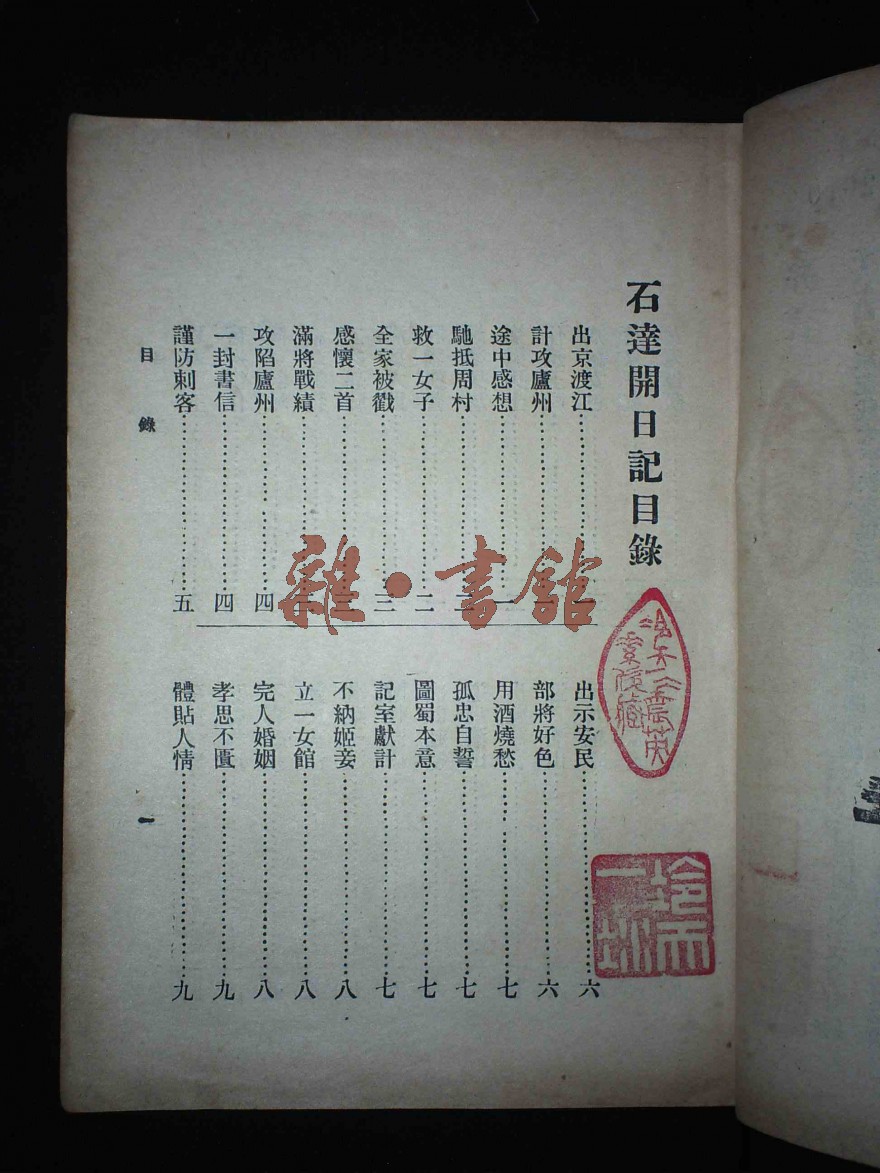 石達開日記目錄
出京渡江
計攻廬州
途中感想……一
馳抵周村……二
救一女子……二
全家被戳……三
感懷二首……三
滿將戰績
攻陷廬州……四
一封書信……四
謹防刺客……五
出示安民……六
部將好色……六
用酒燒愁……七
孤忠自誓……七
圖蜀本意……七
記室獻計……七
不納姬妾……八
立一女館……八
完人婚姻……八
孝思不匱……九
體貼人情……九
目錄
一
雜·書館